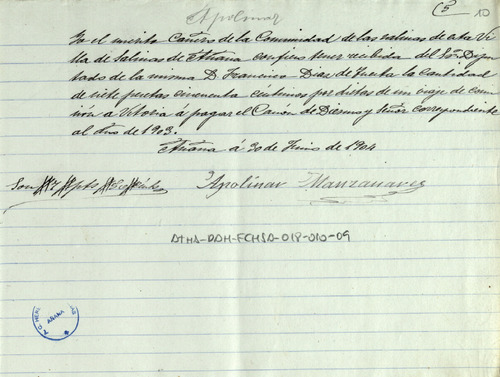 Apolinar
5
10
Yo el infrascrito Cañero de la Comunidad de las salinas de esta Vi-
lla de Salinas de Añana confieso tener recibida del Sor. Dipu-
tado de la misma D. Francisco Diaz de Tuesta la cantidad
de siete pesetas cincuenta céntimos por dietas de un viaje de comi-
sión a Vitoria á pagar el Canón de Diezmos y correspondiente
al año de 1903.
Añana á 30 de Junio de 1904
Son #7 #pts
Apolinar Manzanares
ATHA-DAH-FCHSA-018-010-09
AÑANA